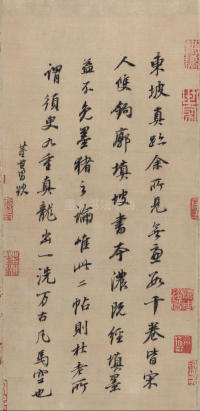 東坡真跡余所見無慮數十卷皆宋
人雙鉤廓填坡書本濃既經填墨
益不免墨豬之論惟此二帖則杜老所
謂須臾九重真龍出一洗萬古凡馬空也
董其昌跋